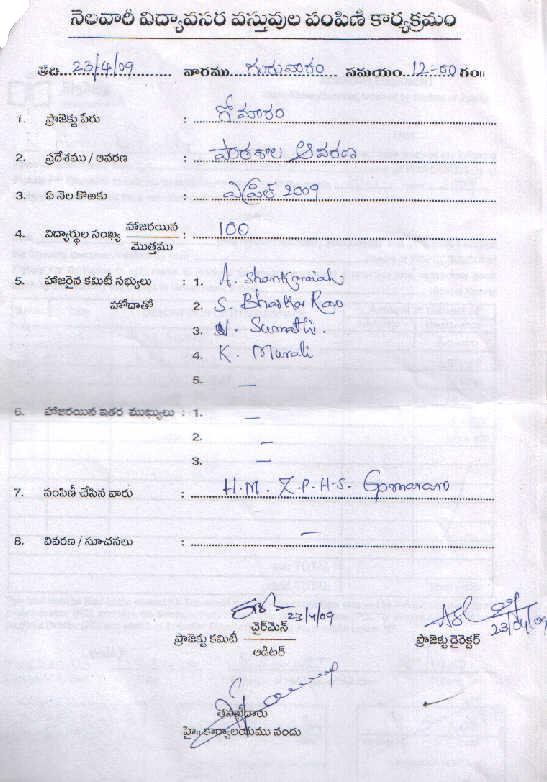 నెలవారీ విద్యావసర వస్తువుల పంపిణీ కార్యక్రమం
తేది...23/4/09... వారము...గురువారం... సమయం.12-00 గం॥
1. ప్రాజెక్టు పేరు : గోమారం
2. ప్రదేశము / ఆవరణ : పాఠశాల ఆవరణ
3. ఏ నెల కొఱకు : ఏప్రిల్ 2009
4. విద్యార్థుల సంఖ్య హాజరయిన / మొత్తము : 100
5. హాజరైన కమిటీ సభ్యులు : 1. A. Shankaraiah
హోదాతో 2. S. Bhaskar Rao
3. N. Sumathi.
4. K. Murali
5. —
6. హాజరయిన ఇతర ముఖ్యులు : 1. —
2. —
3. —
7. పంపిణీ చేసిన వారు : H.M. Z.P.H.S. Gomaram
8. వివరణ / సూచనలు : —
23/4/09
23/04/09
ప్రాజెక్టు కమిటీ చైర్‌మెన్ / ఆడిటర్
ప్రాజెక్టు డైరెక్టర్
హై॥ కార్యాలయము నందు